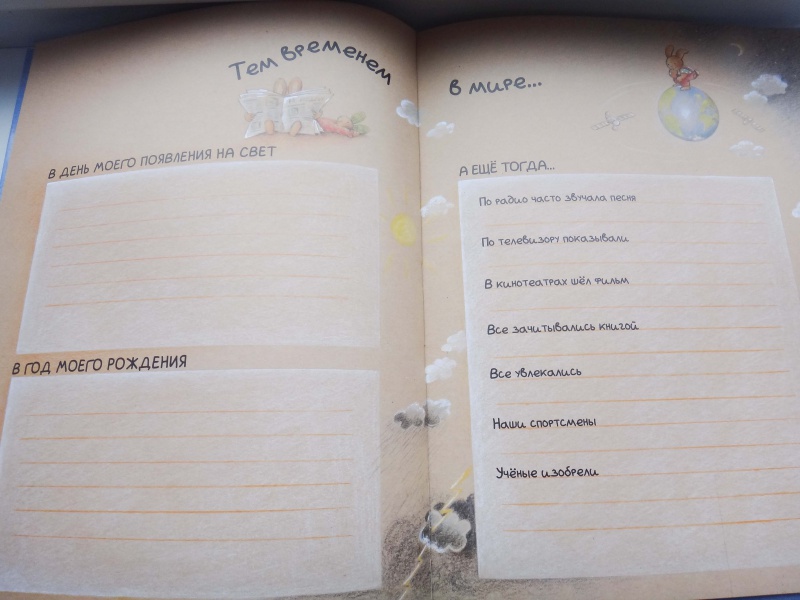 Тем временем
в мире...
В ДЕНЬ МОЕГО ПОЯВЛЕНИЯ НА СВЕТ
В ГОД МОЕГО РОЖДЕНИЯ
А ЕЩЁ ТОГДА...
По радио часто звучала песня
По телевизору показывали
В кинотеатрах шёл фильм
Все зачитывались книгой
Все увлекались
Наши спортсмены
Учёные изобрели